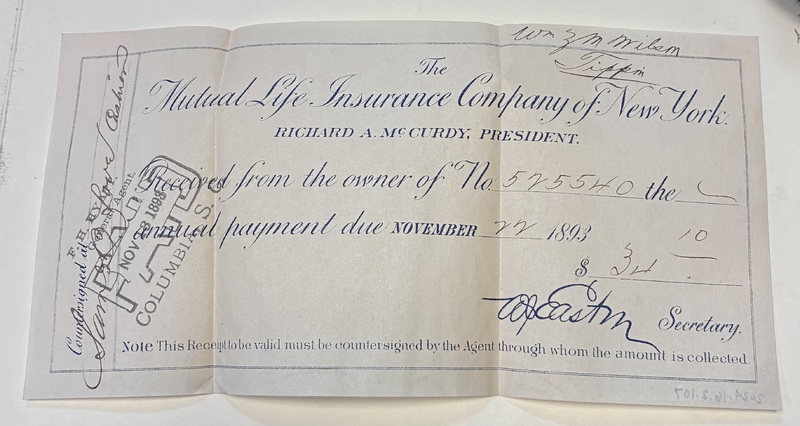 Wm Z M Wilson
Tippin
The
Mutual Life Insurance Company of New York.
RICHARD A. McCURDY, PRESIDENT.
Received from the owner of No. 525540 the
annual payment due NOVEMBER 22 1893
$ 34 10
Secretary.
Note This Receipt to be valid must be countersigned by the Agent through whom the amount is collected.
Countersigned at
F. H. HYATT,
General Agent.
Cashier
PAID
NOV 1893
COLUMBIA, S. C.